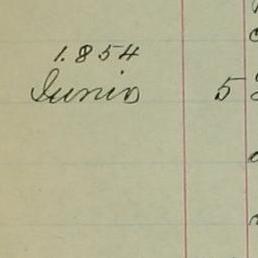 1.854
Junio 5